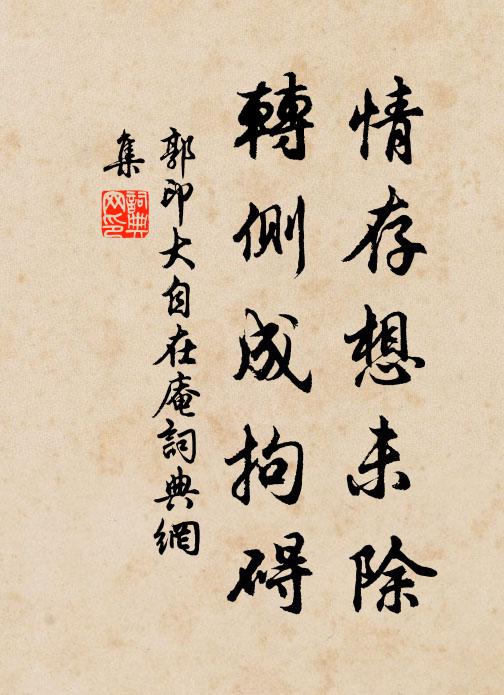 情存想未除
轉側成拘碍
郭印大自在庵詞典網
集
詞典
网印